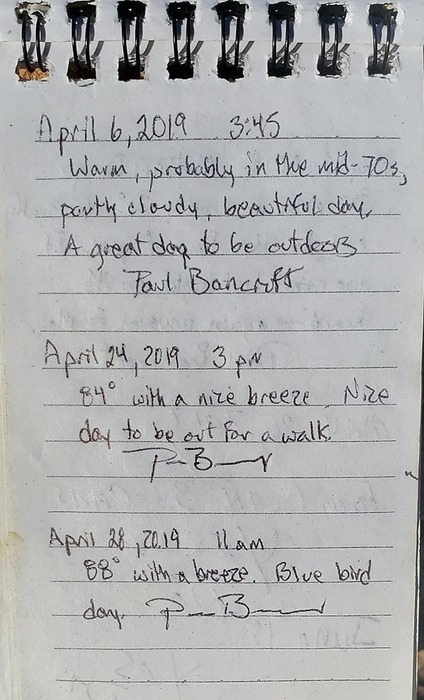 April 6, 2019 3:45
Warm, probably in the mid-70s,
partly cloudy, beautiful day.
A great day to be outdoors
Paul Bancroft
April 24, 2019 3 pm
84° with a nice breeze. Nice
day to be out for a walk.
P B
April 28, 2019 11am
88° with a breeze. Blue bird
day. P B